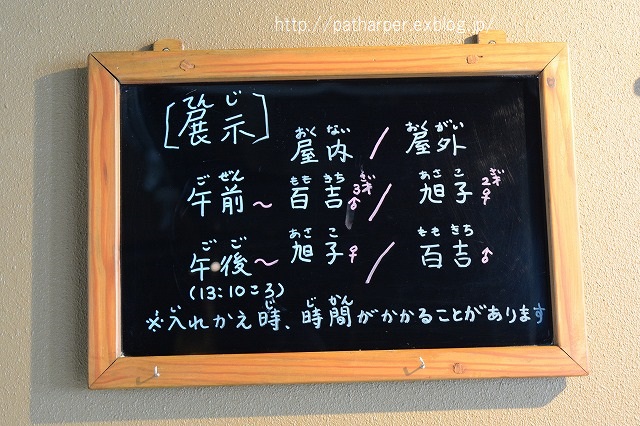 http://patharper.exblog.jp/
てん じ
[展示]
おく ない おく がい
屋内 / 屋外
ご ぜん もも きち さい あさ こ さい
午前～ 百吉 3才♂ / 旭子 2才♀
ご ご あさ こ もも きち
午後～ 旭子♀ / 百吉♂
(13:10ころ)
い じ じ かん
※入れかえ時、時間がかかることがあります